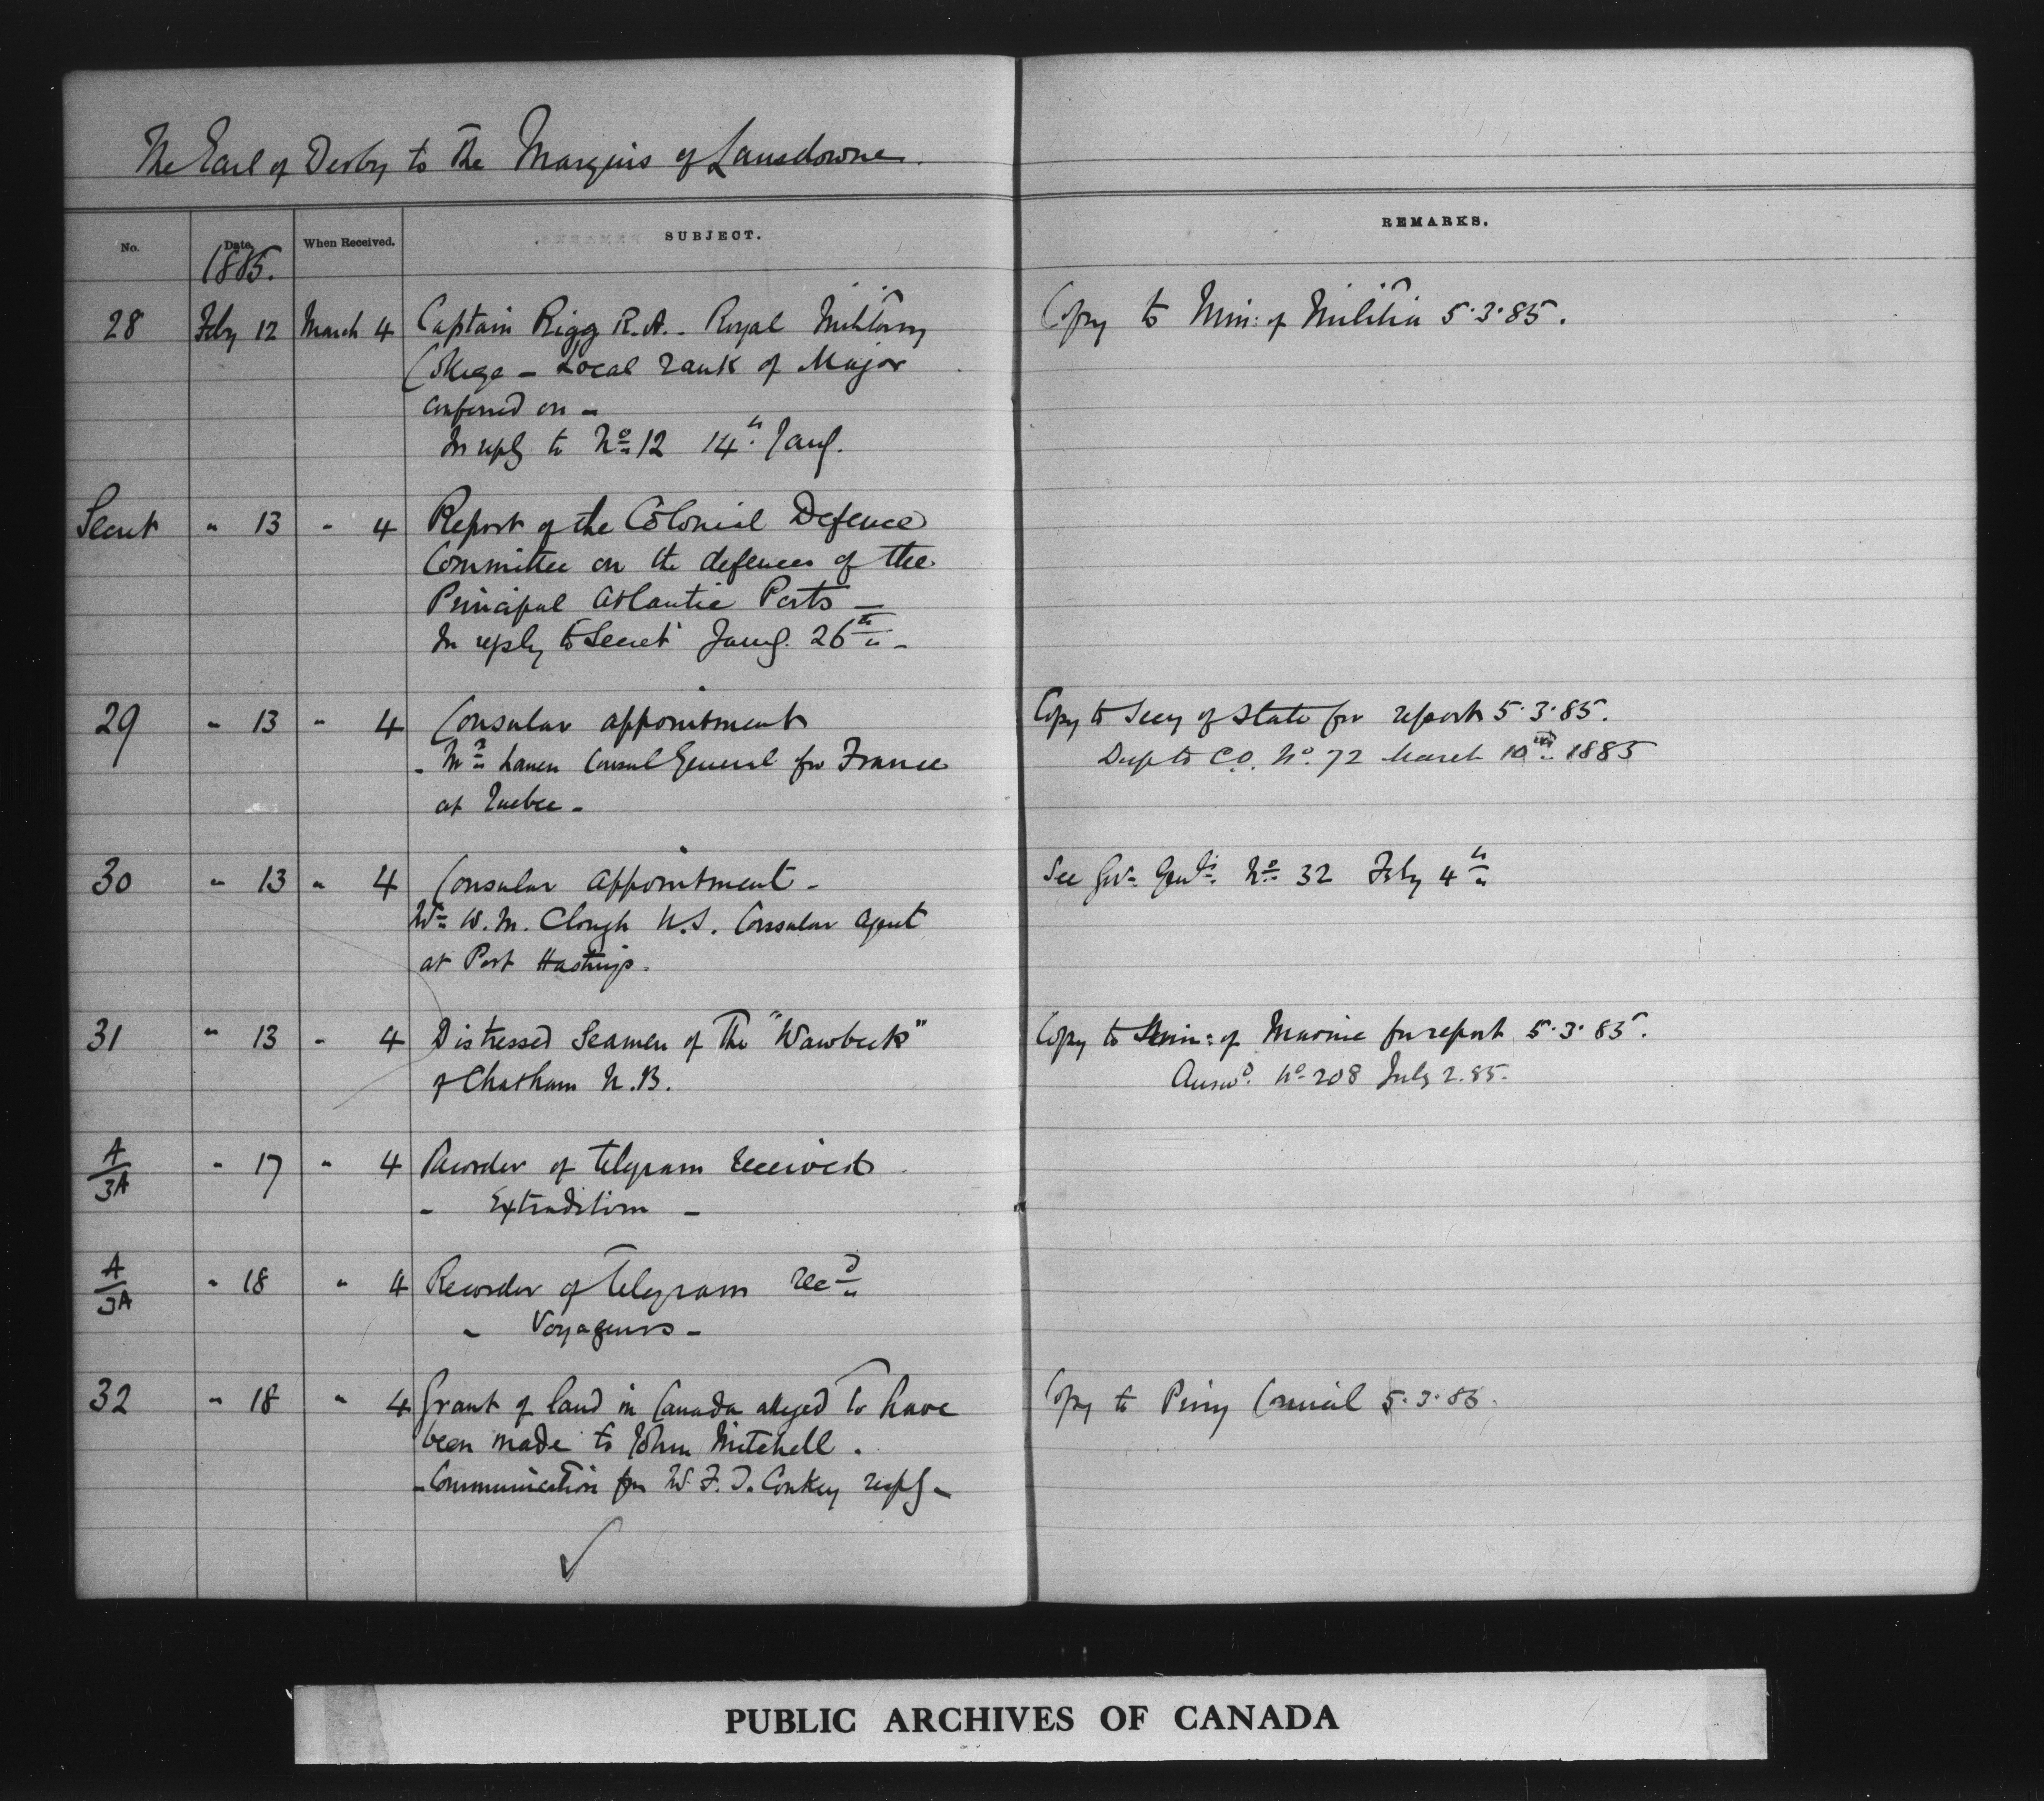 The Earl of Derby to the Marquis of Lansdowne.
No. Date. When Received. SUBJECT. REMARKS.
1885.
28 Feby 12 March 4 Captain Rigg R.A. - Royal Military Copy to Min: of Militia 5.3.85.
College - Local rank of Major
conferred on -
In reply to No 12 14th Jany.
Secret " 13 " 4 Report of the Colonial Defence
Committee on the defences of the
Principal Atlantic Ports -
In reply to Secret Jany. 26th -
29 " 13 " 4 Consular appointment Copy to Secy of State for report 5.3.85.
- Mr Consul General for France Desp to C.O. No. 72 March 10th 1885
at Quebec -
30 " 13 " 4 Consular appointment - See Govr Genls No 32 Feby 4th
W. M. Clough U.S. Consular Agent
at Port Hastings.
31 " 13 " 4 Distressed Seamen of the "Wawbeek" Copy to Min: of Marine for report 5.3.85.
of Chatham N.B. Answd. No 208 July 2.85.
A/3A " 17 " 4 Recorder of telegram received
- Extradition -
A/3A " 18 " 4 Recorder of telegram recd
- Voyageurs -
32 " 18 " 4 Grant of land in Canada alleged to have Copy to Privy Council 5.3.85.
been made to John Mitchell.
- Communication fm W. F. J. Conkey respg -
PUBLIC ARCHIVES OF CANADA